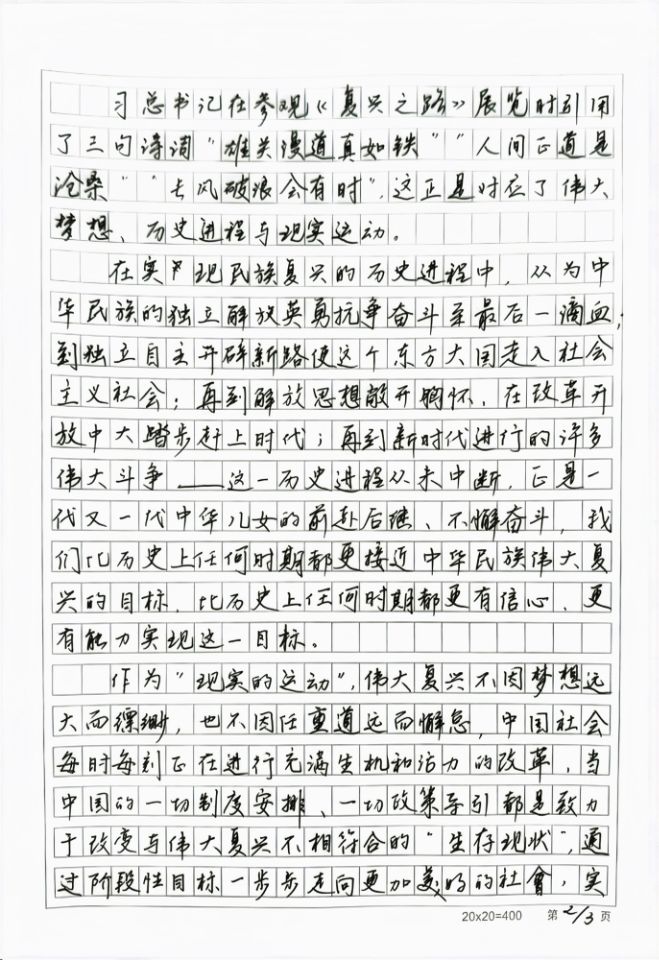 习总书记在参观《复兴之路》展览时引用
了三句诗词“雄关漫道真如铁”“人间正道是
沧桑”“长风破浪会有时”,这正是对应了伟大
梦想、历史进程与现实运动。
在实现民族复兴的历史进程中,从为中
华民族的独立解放英勇抗争奋斗至最后一滴血;
到独立自主开辟新路使这个东方大国走入社会
主义社会;再到解放思想敞开胸怀,在改革开
放中大踏步赶上时代;再到新时代进行的许多
伟大斗争——这一历史进程从未中断,正是一
代又一代中华儿女的前赴后继、不懈奋斗,我
们比历史上任何时期都更接近中华民族伟大复
兴的目标,比历史上任何时期都更有信心、更
有能力实现这一目标。
作为“现实的运动”,伟大复兴不因梦想远
大而缥缈,也不因任重道远而懈怠,中国社会
每时每刻正在进行充满生机和活力的改革,当
中国的一切制度安排、一切政策导引都是致力
于改变与伟大复兴不相符合的“生存现状”,通
过阶段性目标一步步走向更加美好的社會,实
20x20=400 第2/3页